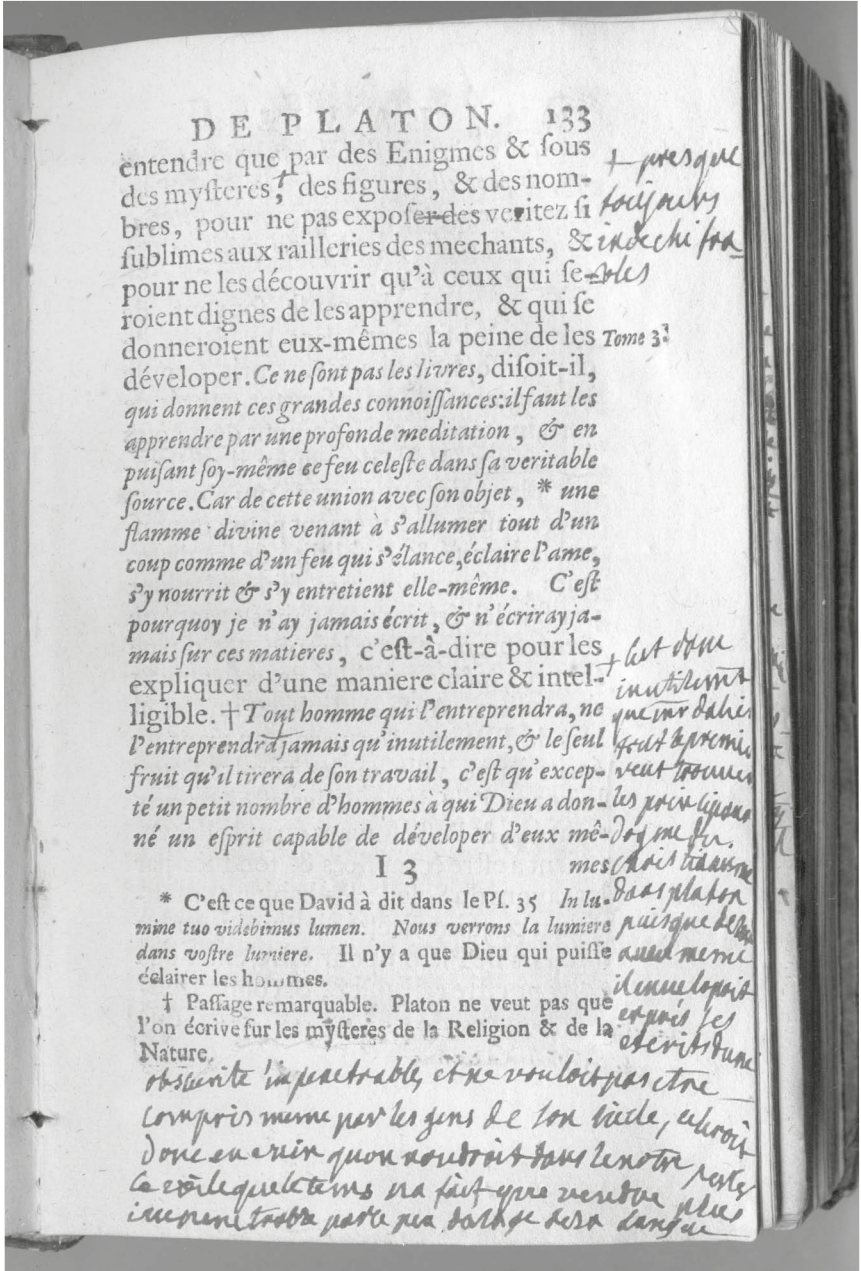 DE PLATON. 133
entendre que par des Enigmes & sous
des mysteres,† des figures, & des nom-
bres, pour ne pas exposer des veritez si
sublimes aux railleries des mechants, &
pour ne les découvrir qu'à ceux qui se-
roient dignes de les apprendre, & qui se
donneroient eux-mêmes la peine de les
déveloper. Ce ne sont pas les livres, disoit-il,
qui donnent ces grandes connoissances: il faut les
apprendre par une profonde meditation, & en
puisant soy-même ce feu celeste dans sa veritable
source. Car de cette union avec son objet, * une
flamme divine venant à s'allumer tout d'un
coup comme d'un feu qui s'élance, éclaire l'ame,
s'y nourrit & s'y entretient elle-même. C'est
pourquoy je n'ay jamais écrit, & n'écriray ja-
mais sur ces matieres, c'est-à-dire pour les
expliquer d'une maniere claire & intel-
ligible. † Tout homme qui l'entreprendra, ne
l'entreprendra jamais qu'inutilement, & le seul
fruit qu'il tirera de son travail, c'est qu'excep-
té un petit nombre d'hommes à qui Dieu a don-
né un esprit capable de déveloper d'eux mê-
I 3 mes
* C'est ce que David à dit dans le Ps. 35 In lu-
mine tuo videbimus lumen. Nous verrons la lumiere
dans vostre lumiere. Il n'y a que Dieu qui puisse
éclairer les hommes.
† Passage remarquable. Platon ne veut pas que
l'on écrive sur les mysteres de la Religion & de la
Nature.
+ presque
toujours
indechifra-
bles
Tome 3.
+ cest donc
inutilement
que mr dacier
veut trouver
les principaux
dogme du
christianisme
dans platon
puisque de son
aveu meme
il envelopoit
ses
ecrits dune
obscurité impenetrable, et ne vouloit pas etre
compris meme par les gens de son siecle,
donc en vain quon voudroit dans le notre percer
le voile que le tems na fait que rendre plus
impenetrable par le peu dusage de sa langue